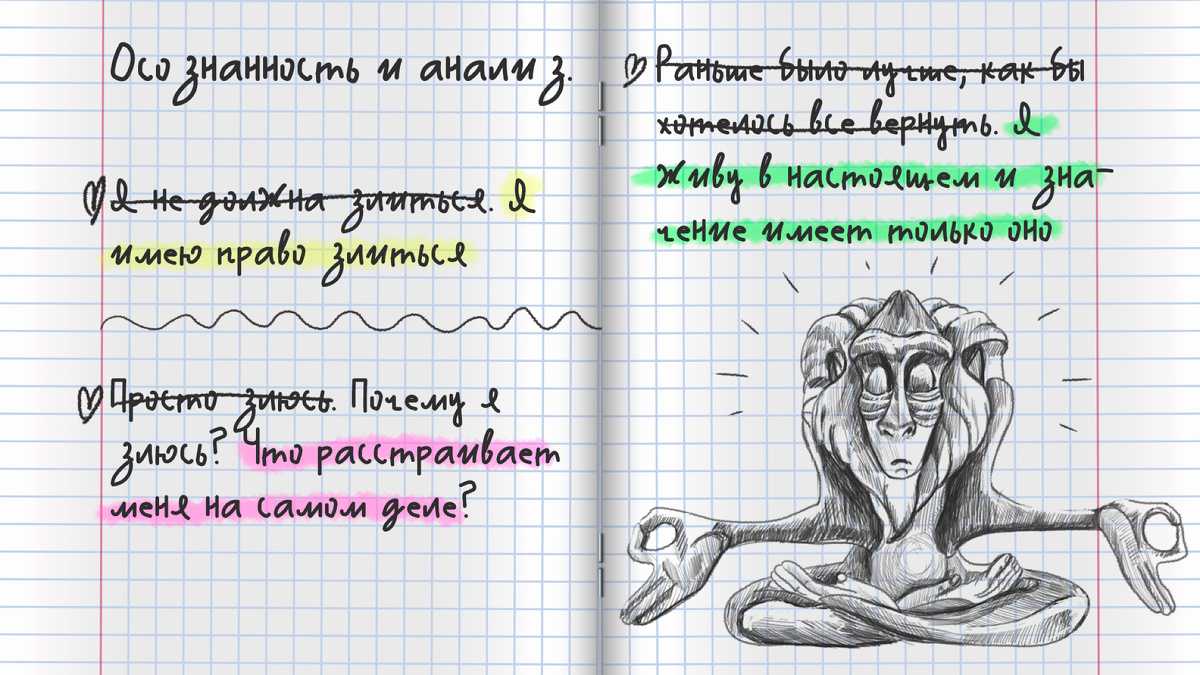 Осознанность и анализ.
Я не должна злиться. Я
имею право злиться
Просто злюсь. Почему я
злюсь? Что расстраивает
меня на самом деле?
Раньше было лучше, как бы
хотелось все вернуть. Я
живу в настоящем и зна-
чение имеет только оно